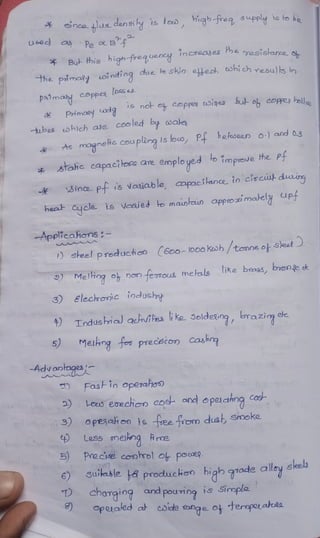 * Since flux density is low, high-freq supply is to be
used as Pe ∝ B²f²
* But this high-frequency increases the resistance of
the primary winding due to skin effect which results in
primary copper losses
* Primary wdg is not of copper wires but of copper hollow
tubes which are cooled by water
* As magnetic coupling is low, Pf between 0.1 and 0.3
* static capacitors are employed to improve the Pf
* Since pf is variable, capacitance in circuit during
heat cycle is varied to maintain approximately upf
Applications:-
1) steel production (600-1000 kwh/tonne of steel)
2) Melting of non ferrous metals like brass, bronze etc
3) Electronic industry
4) Industrial activities like soldering, brazing etc
5) Melting for precision casting
Advantages:-
1) Fast in operation
2) Low erection cost and operating cost
3) operation is free from dust, smoke
4) Less melting time
5) Precise control of power
6) suitable for production high grade alloy steels
7) charging and pouring is simple
8) operated at wide range of temperature